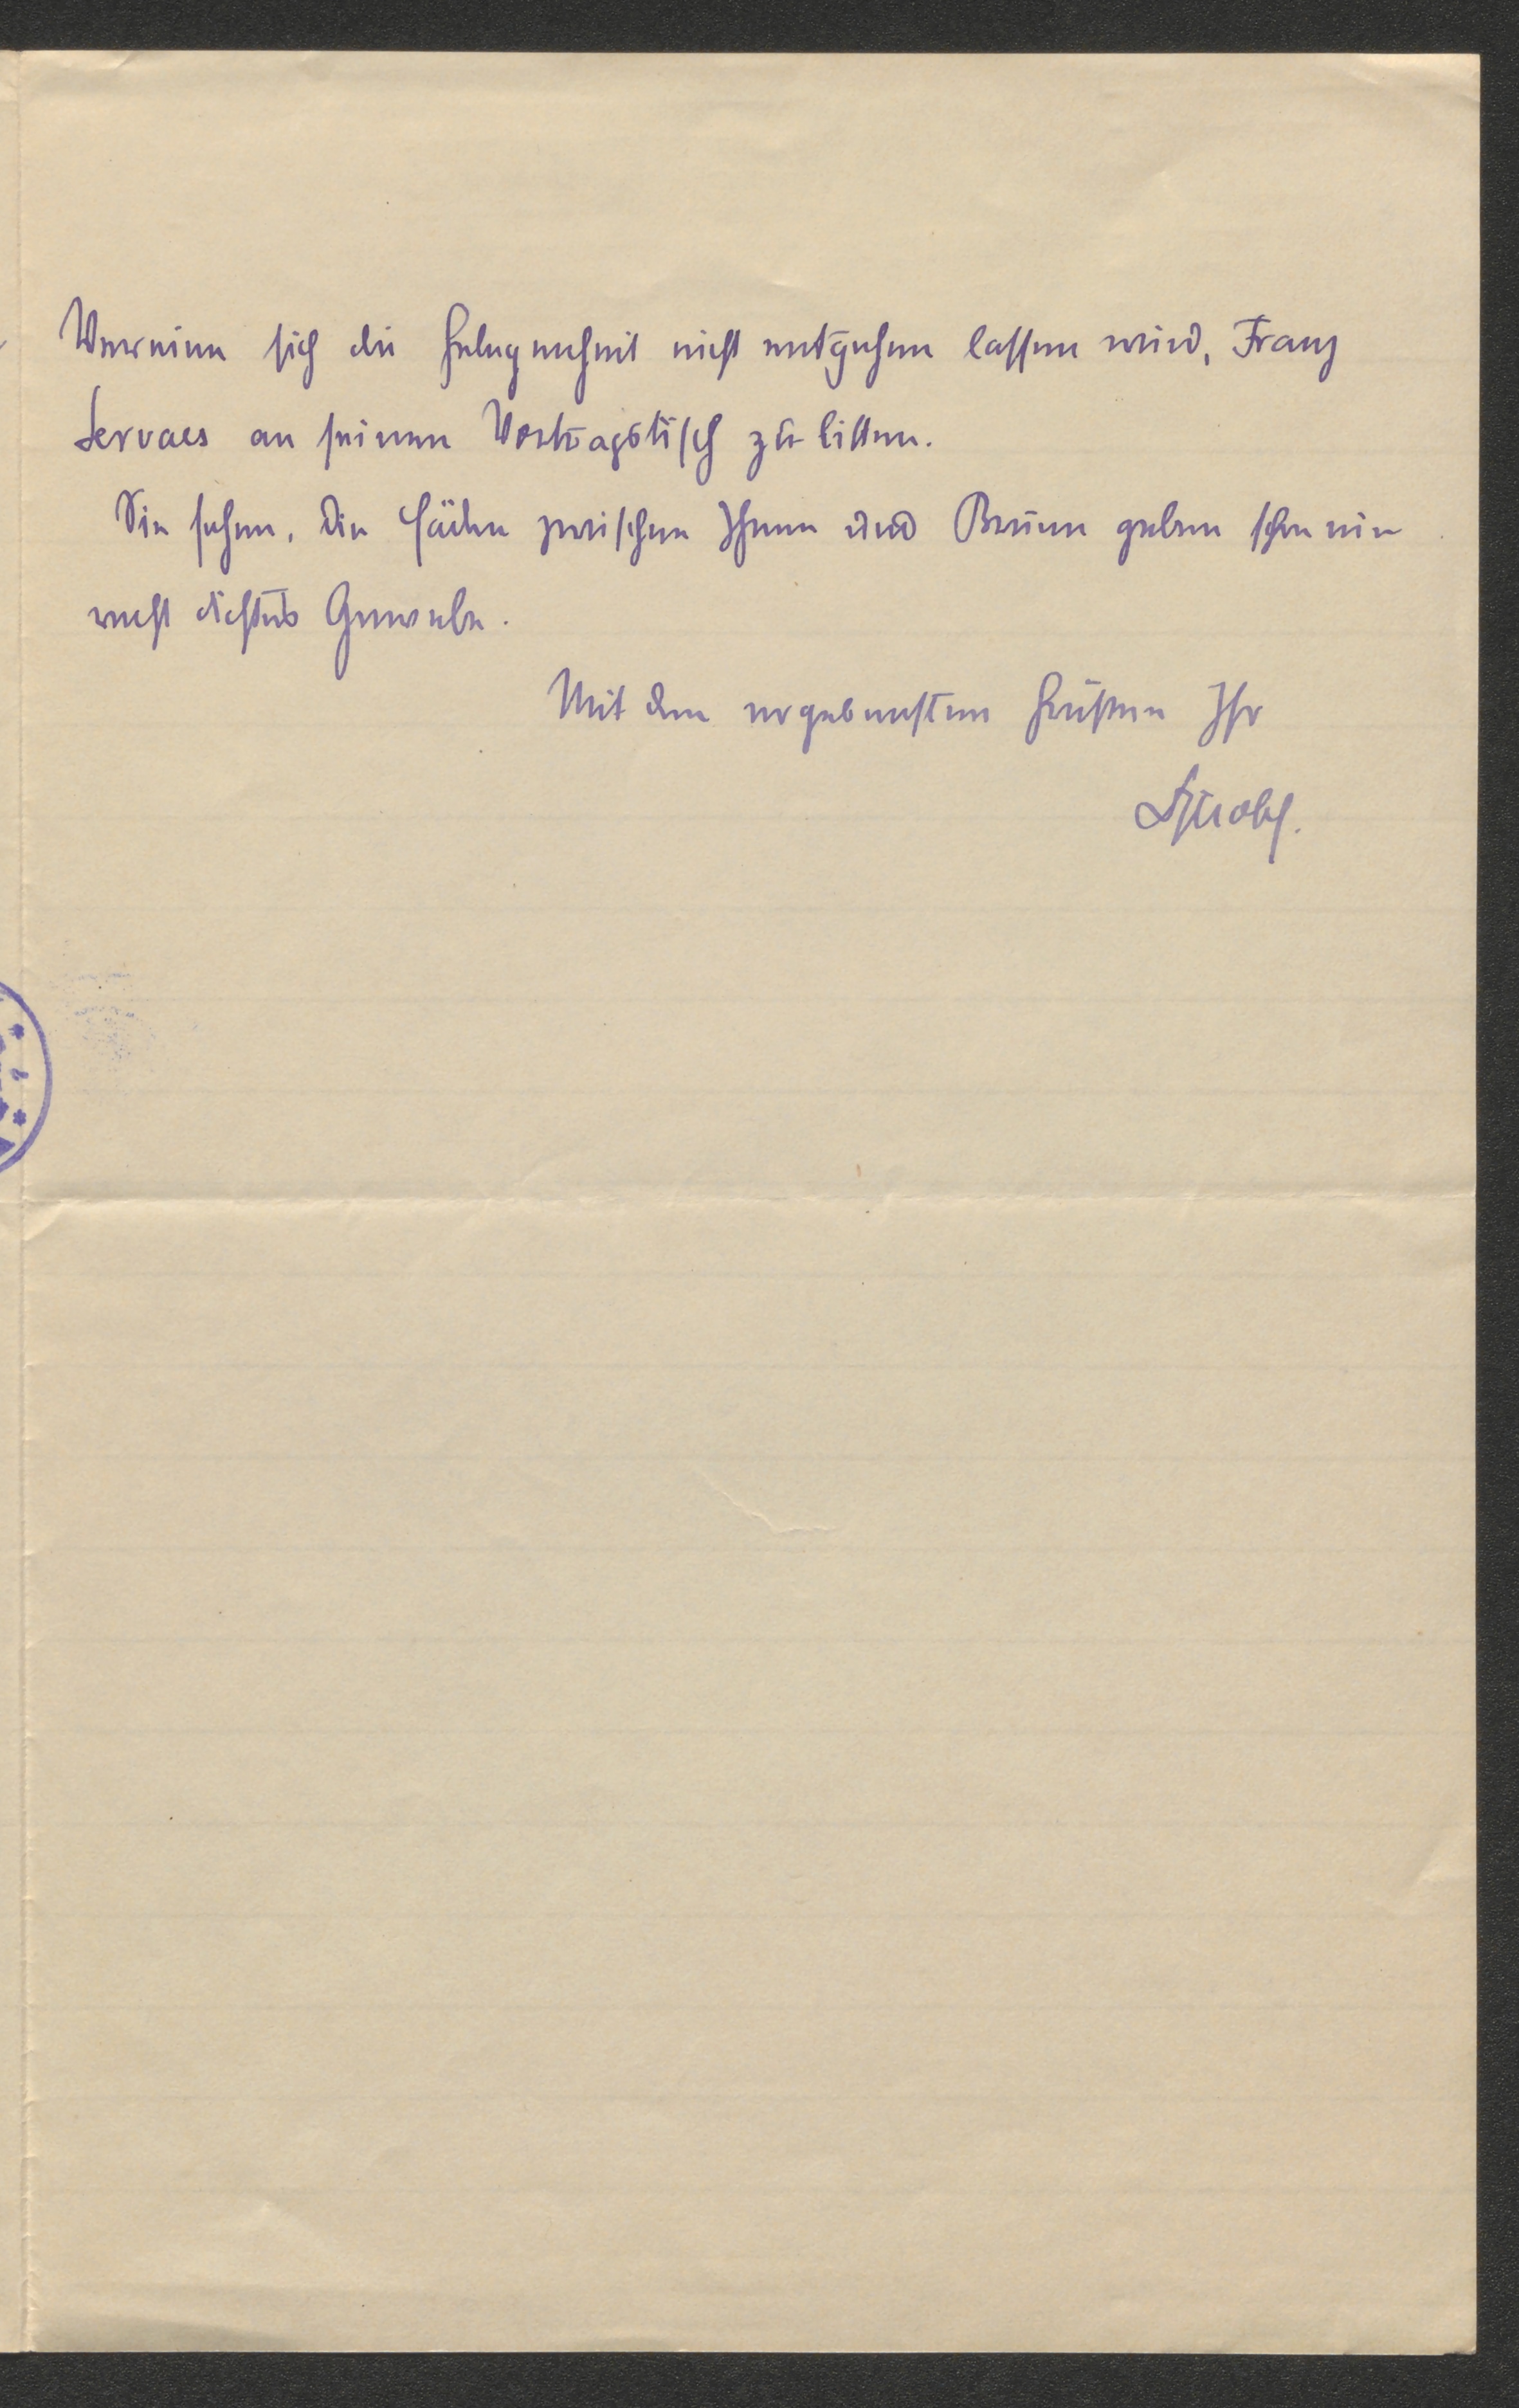 Vereine sich die Gelegenheit nicht entgehen lassen wird, Franz
Servaes an seinen Vortragstisch zu bitten.
Sie sehen, die Fäden zwischen Ihnen und Brünn geben schon ein
recht dichtes Gewebe.
Mit den ergebensten Grüßen Ihr
Strobl.